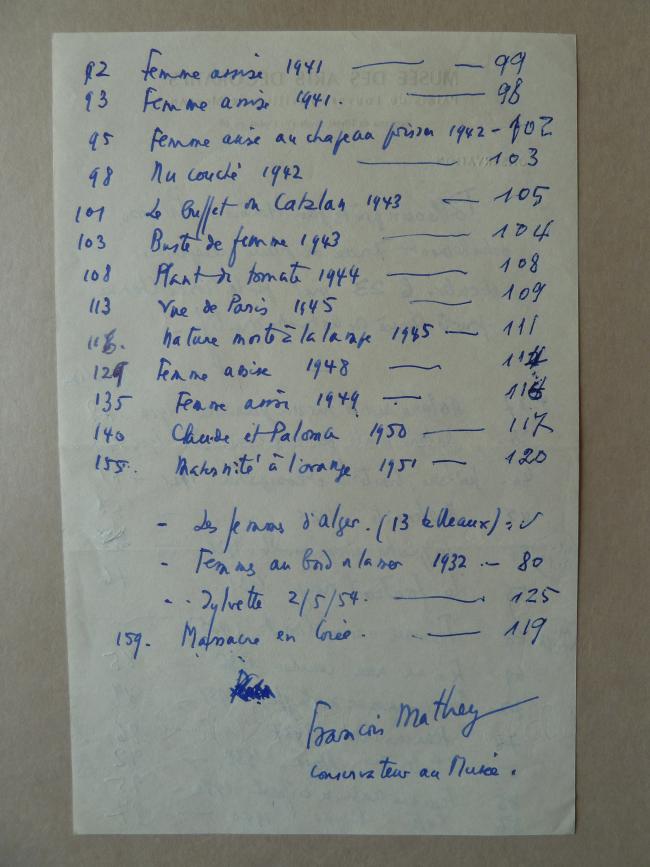 92 Femme assise 1941 — — 99
93 Femme assise 1941. — 98
95 Femme assise au chapeau poisson 1942 - 102
98 Nu couché 1942 — 103
101 Le buffet du Catalan 1943 — 105
103 Buste de femme 1943 — 104
108 Plant de tomate 1944 — 108
113 Vue de Paris 1945 — 109
116. Nature morte à la lampe 1945 — 111
129 Femme assise 1948 — 114
135 Femme assise 1949 — 116
140 Claude et Paloma 1950 — 117
155. Maternité à l'orange 1951 — 120
- Les femmes d'alger. (13 tableaux)
- Femmes au bord de la mer 1932 - 80
- Sylvette 2/5/54. — 125
159. Massacre en Corée. — 119
François Mathey
Conservateur au Musée.